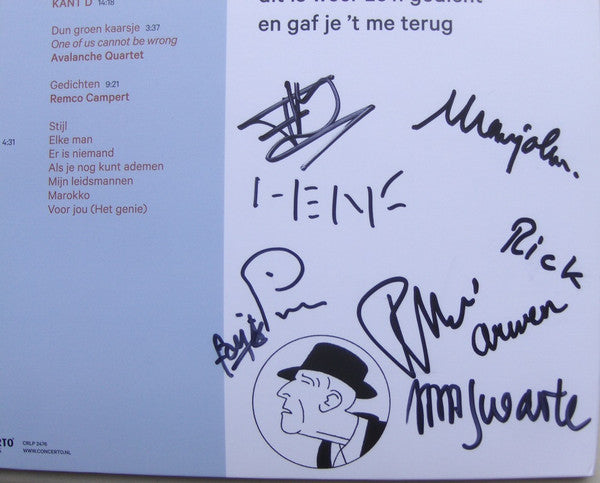 KANT D 14:18
Dun groen kaarsje 3:37
One of us cannot be wrong
Avalanche Quartet
Gedichten 9:21
Remco Campert
Stijl
4:31 Elke man
Er is niemand
Als je nog kunt ademen
Mijn leidsmannen
Marokko
Voor jou (Het genie)
CRLP 2476
WWW.CONCERTO.NL
en gaf je 't me terug
Marjolein
HENK
Rick
arwen
Swarte